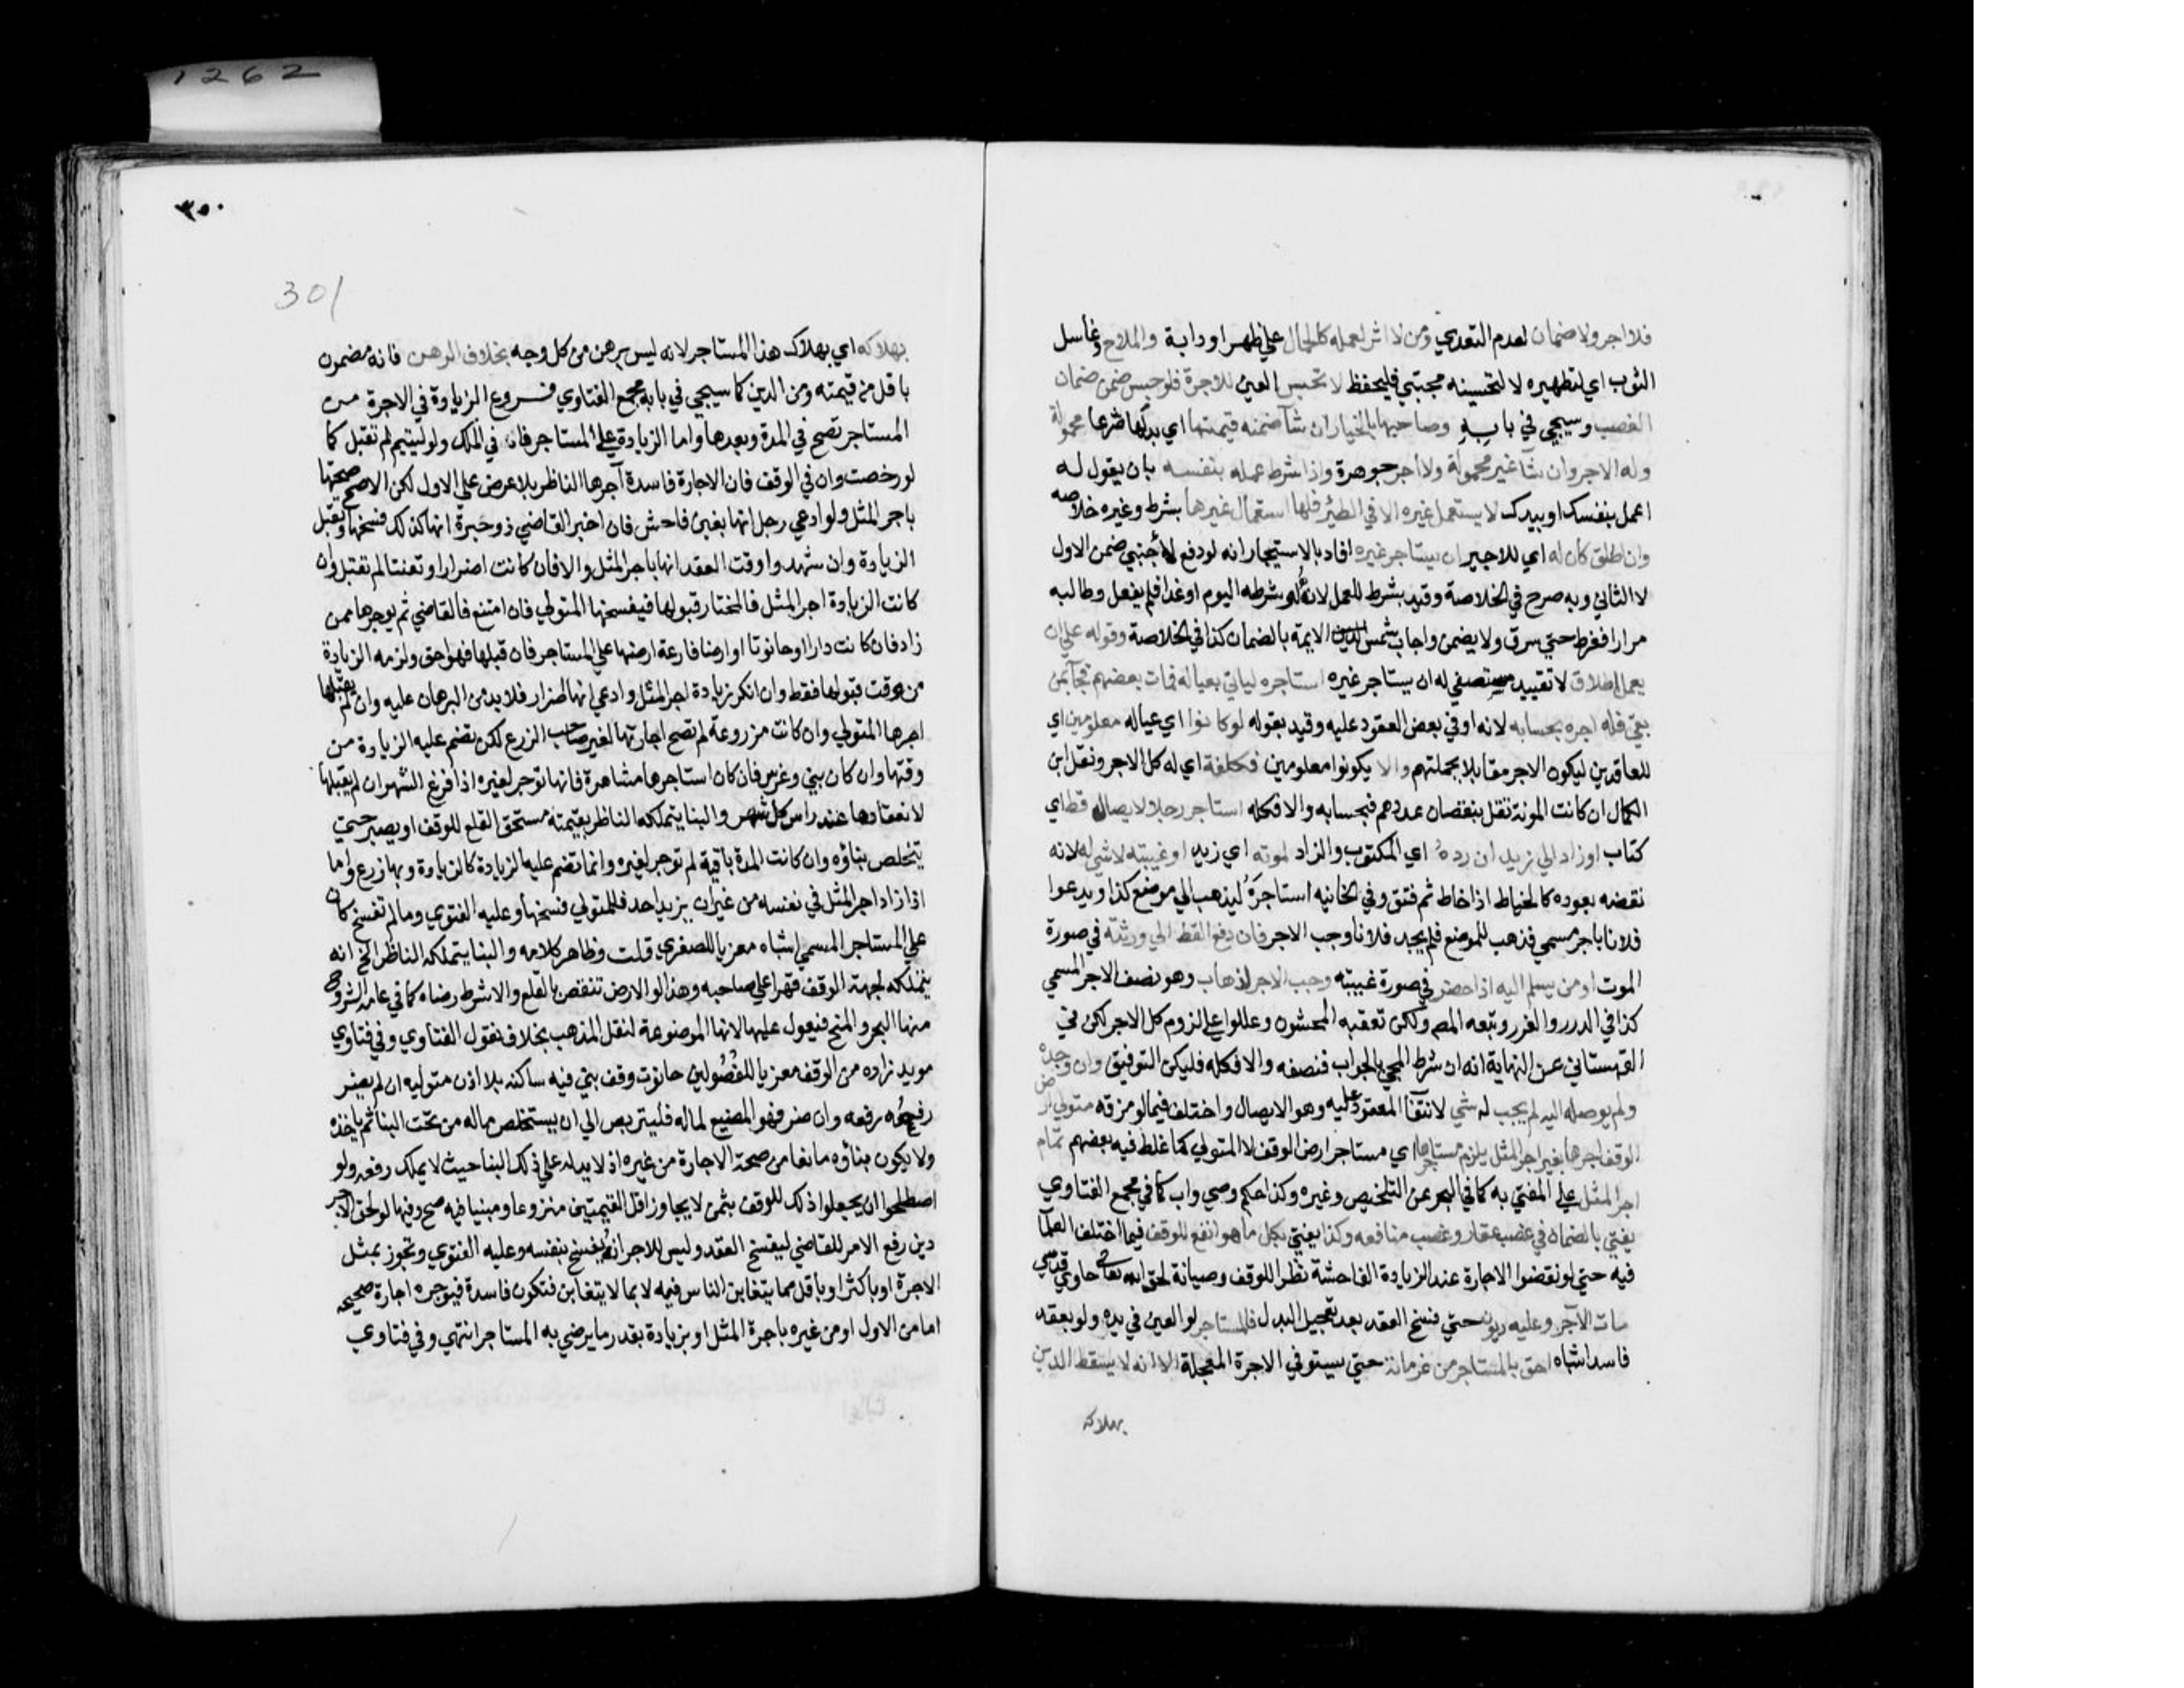 فلا اجر ولا ضمان لعدم التعدي ومن لا اثر لعمله كالحمال علي ظهر او دابة والملاح وغاسل
الثوب اي لتطهيره لا لتحسينه مجتبي فليحفظ لا تحبس العين للاجرة فلو حبس ضمن ضمان
الغصب وسيجي في بابه وصاحبها بالخيار ان شآ ضمنه قيمتها اي بدلها شرعا محمولة
وله الاجر وان شآ غير محمولة ولا اجر جوهرة واذا شرط عمله بنفسه بان يقول له
اعمل بنفسك او بيدك لا يستعمل غيره الا في الظئر فلها استعمال غيرها بشرط وغيره خلاصه
وان اطلق كان له اي للاجير ان يستاجر غيره افاد بالاستيجار انه لو دفع لاجنبي ضمن الاول
لا الثاني وبه صرح في الخلاصة وقيد بشرط العمل لانه لو شرطه اليوم او غدا فلم يفعل وطالبه
مرارا ففرط حتي سرق ولا يضمن واجاب شمس الايمة بالضمان كذا في الخلاصة وقوله علي ان
يعمل اطلاق لا تقييد مستصفي له ان يستاجر غيره استاجره لياتي بعياله فمات بعضهم فجآ بمن
بقي فله اجره بحسابه لانه اوفي بعض العقود عليه وقيد بقوله لو كانوا اي عياله معلومين اي
للعاقدين ليكون الاجر مقابلا بجملتهم والا يكونوا معلومين فكله اي له كل الاجر ونقل ابن
الكمال ان كانت المونة تقل بنقصان عددهم فبحسابه والا فكله استاجر رجلا لايصال قط اي
كتاب او زاد الي زيد ان رده اي المكتوب والزاد لموته اي زيد او غيبته لا شي له لانه
نقضه بعوده كالخياط اذا خاط ثم فتق وفي الخانيه استاجره ليذهب الي موضع كذا ويدعوا
فلانا باجر مسمي فذهب للموضع فلم يجد فلانا وجب الاجر فان دفع القط الي ورثته في صورة
الموت او من يسلم اليه اذا حضر في صورة غيبته وجب الاجر لذهاب وهو نصف الاجر المسمي
كذا في الدرر والغرر وتبعه المص ولكن تعقبه المحشون وعللوا علي لزوم كل الاجر لكن في
القهستاني عن النهاية انه ان شرط المجي بالجواب فنصفه والا فكله فليكن التوفيق وان وجده
ولم يوصله اليه لم يجب له شي لانتفآ المعقود عليه وهو الايصال واختلف فيما لو مزقه متولي ارض
الوقف اجرها بغير اجر المثل يلزم مستاجرها اي مستاجر ارض الوقف لا المتولي كما غلط فيه بعضهم تمام
اجر المثل علي المفتي به كما في البحر عن التلخيص وغيره وكذا حكم وصي واب كما في مجمع الفتاوي
يفتي بالضمان في غصب عقار وغصب منافعه وكذا يفتي بكل ما هو انفع للوقف فيما اختلف العلمآ
فيه حتي لو نقضوا الاجارة عند الزيادة الفاحشة نظرا للوقف وصيانة لحق الله تعالي حاوي قدسي
مات الآجر وعليه ديون حتي فسخ العقد بعد تعجيل البدل فالمستاجر لو العين في يده ولو بعقد
فاسد اشباه احق بالمستاجر من غرمائه حتي يستوفي الاجرة المعجلة الا انه لا يسقط الدين
بهلاكه
1262
٣٥٠
301
بهلاكه اي بهلاك هذا المستاجر لانه ليس برهن من كل وجه بخلاف الرهن فانه مضمون
باقل من قيمته ومن الدين كما سيجي في بابه مجمع الفتاوي فروع الزيادة في الاجرة من
المستاجر تصح في المدة وبعدها واما الزيادة علي المستاجر فان في الملك ولو ليتيم لم تقبل كما
لو رخصت وان في الوقف فان الاجارة فاسدة آجرها الناظر بلا عرض علي الاول لكن الاصح صحتها
باجر المثل ولو ادعي رجل انها بغبن فاحش فان اخبر القاضي ذو خبرة انها كذلك فسخها وتقبل
الزيادة وان شهدوا وقت العقد انها باجر المثل والا فان كانت اضرارا وتعنتا لم تقبل وان
كانت الزيادة اجر المثل فالمختار قبولها فيفسخها المتولي فان امتنع فالقاضي ثم يوجرها ممن
زاد فان كانت دارا او حانوتا او ارضا فارغة عرضها علي المستاجر فان قبلها فهو احق ولزمه الزيادة
من وقت قبولها فقط وان انكر زيادة اجر المثل وادعي انها اضرار فلا بد من البرهان عليه وان لم يقبلها
اجرها المتولي وان كانت مزروعة لم تصح اجارتها لغير صاحب الزرع لكن تضم عليه الزيادة من
وقتها وان كان بني وغرس فان كان استاجرها مشاهرة فانها توجر لغيره اذا فرغ الشهر ان لم يقبلها
لانعقادها عند راس كل شهر والبنا يتملكه الناظر بقيمته مستحق القلع للوقف او يصبر حتي
يتخلص بناؤه وان كانت المدة باقية لم توجر لغيره وانما تضم عليه الزيادة كالزيادة وبها زرع واما
اذا زاد اجر المثل في نفسه من غير ان يزيد احد فللمتولي فسخها وعليه الفتوي وما لم تفسخ كان
علي المستاجر المسمي اشباه معزيا للصغري قلت وظاهر كلامه والبنا يتملكه الناظر الخ انه
يتملكه لجهة الوقف قهرا علي صاحبه وهذا لو الارض تنقص بالقلع والا شرط رضاه كما في عامة الشروح
منها البحر والمنح فيعول عليها لانها الموضوعة لنقل المذهب بخلاف نقول الفتاوي وفي فتاوي
مويد زاده من الوقف معزيا للفصولين حانوت وقف بني فيه ساكنه بلا اذن متوليه ان لم يضر
رفعه رفعه وان ضر فهو المضيع لماله فليتربص الي ان يستخلص ماله من تحت البنا ثم ياخذه
ولا يكون بناؤه مانعا من صحة الاجارة من غيره اذ لا يد له علي ذلك البنا حيث لا يملك رفعه ولو
اصطلحوا ان يجعلوا ذلك للوقف بثمن لا يجاوز اقل القيمتين منزوعا ومبنيا فيه صح وفيها لو لحق الآجر
دين رفع الامر للقاضي ليفسخ العقد وليس للاجر ان يفسخ بنفسه وعليه الفتوي وتجوز بمثل
الاجرة او باكثر او باقل مما يتغابن الناس فيه لا بما لا يتغابن فتكون فاسدة فيوجره اجارة صحيحه
اما من الاول او من غيره باجرة المثل او بزيادة بقدر ما يرضي به المستاجر انتهي وفي فتاوي